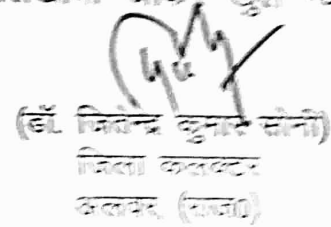 (डॉ. जितेन्द्र कुमार सोनी)
जिला कलक्टर
अलवर (राज0)